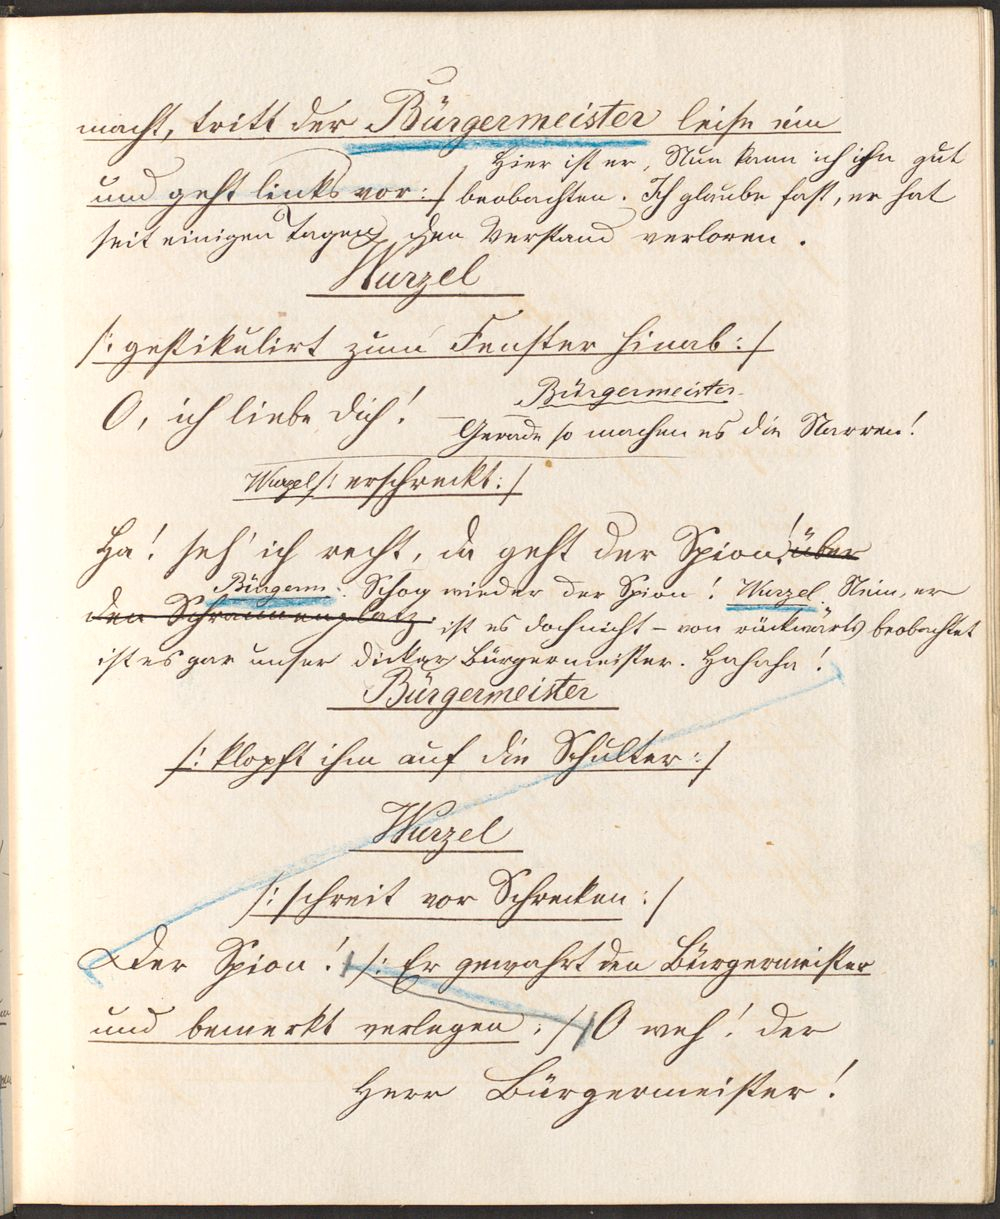 macht, tritt der Bürgermeister leise ein
und geht links vor :/ Hier ist er, Nun kann ich ihn gut
beobachten. Ich glaube fast, er hat
seit einigen Tagen den Verstand verloren.
Wurzel
/: gestikulirt zum Fenster hinab :/
O, ich liebe Dich! – Bürgermeister
Gerade so machen es die Narren!
Wurzel /: erschreckt :/
Ha! seh' ich recht, da geht der Spion! über
den Schrannenplatz. Bürgerm. Schon wieder der Spion! Wurzel. Nein, er
ist es doch nicht – von rückwärts beobachtet
ist es gar unser dicker Bürgermeister. Hahaha!
Bürgermeister
/: klopft ihm auf die Schulter :/
Wurzel
/: schreit vor Schrecken :/
Der Spion! /: Er gewahrt den Bürgermeister
und bemerkt verlegen :/ O weh! der
Herr Bürgermeister!